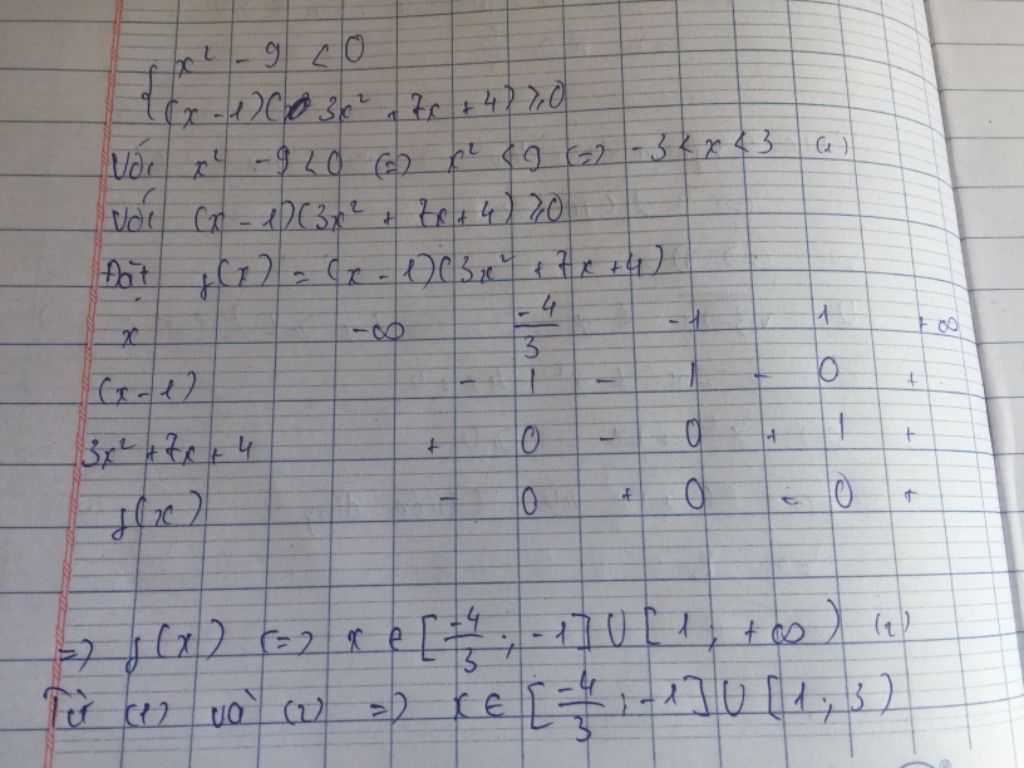 { x² - 9 < 0
(x - 1)(3x² + 7x + 4) ≥ 0
Với x² - 9 < 0 (=) x² < 9 (=) -3 < x < 3 (1)
Với (x - 1)(3x² + 7x + 4) ≥ 0
Đặt f(x) = (x - 1)(3x² + 7x + 4)
x -∞ -4/3 -1 1 +∞
(x - 1) - | - | - 0 +
3x² + 7x + 4 + 0 - 0 + | +
f(x) - 0 + 0 - 0 +
=) f(x) (=) x ∈ [-4/3 ; -1] U [1 ; +∞) (2)
Từ (1) và (2) =) x ∈ [-4/3 ; -1] U [1 ; 3)